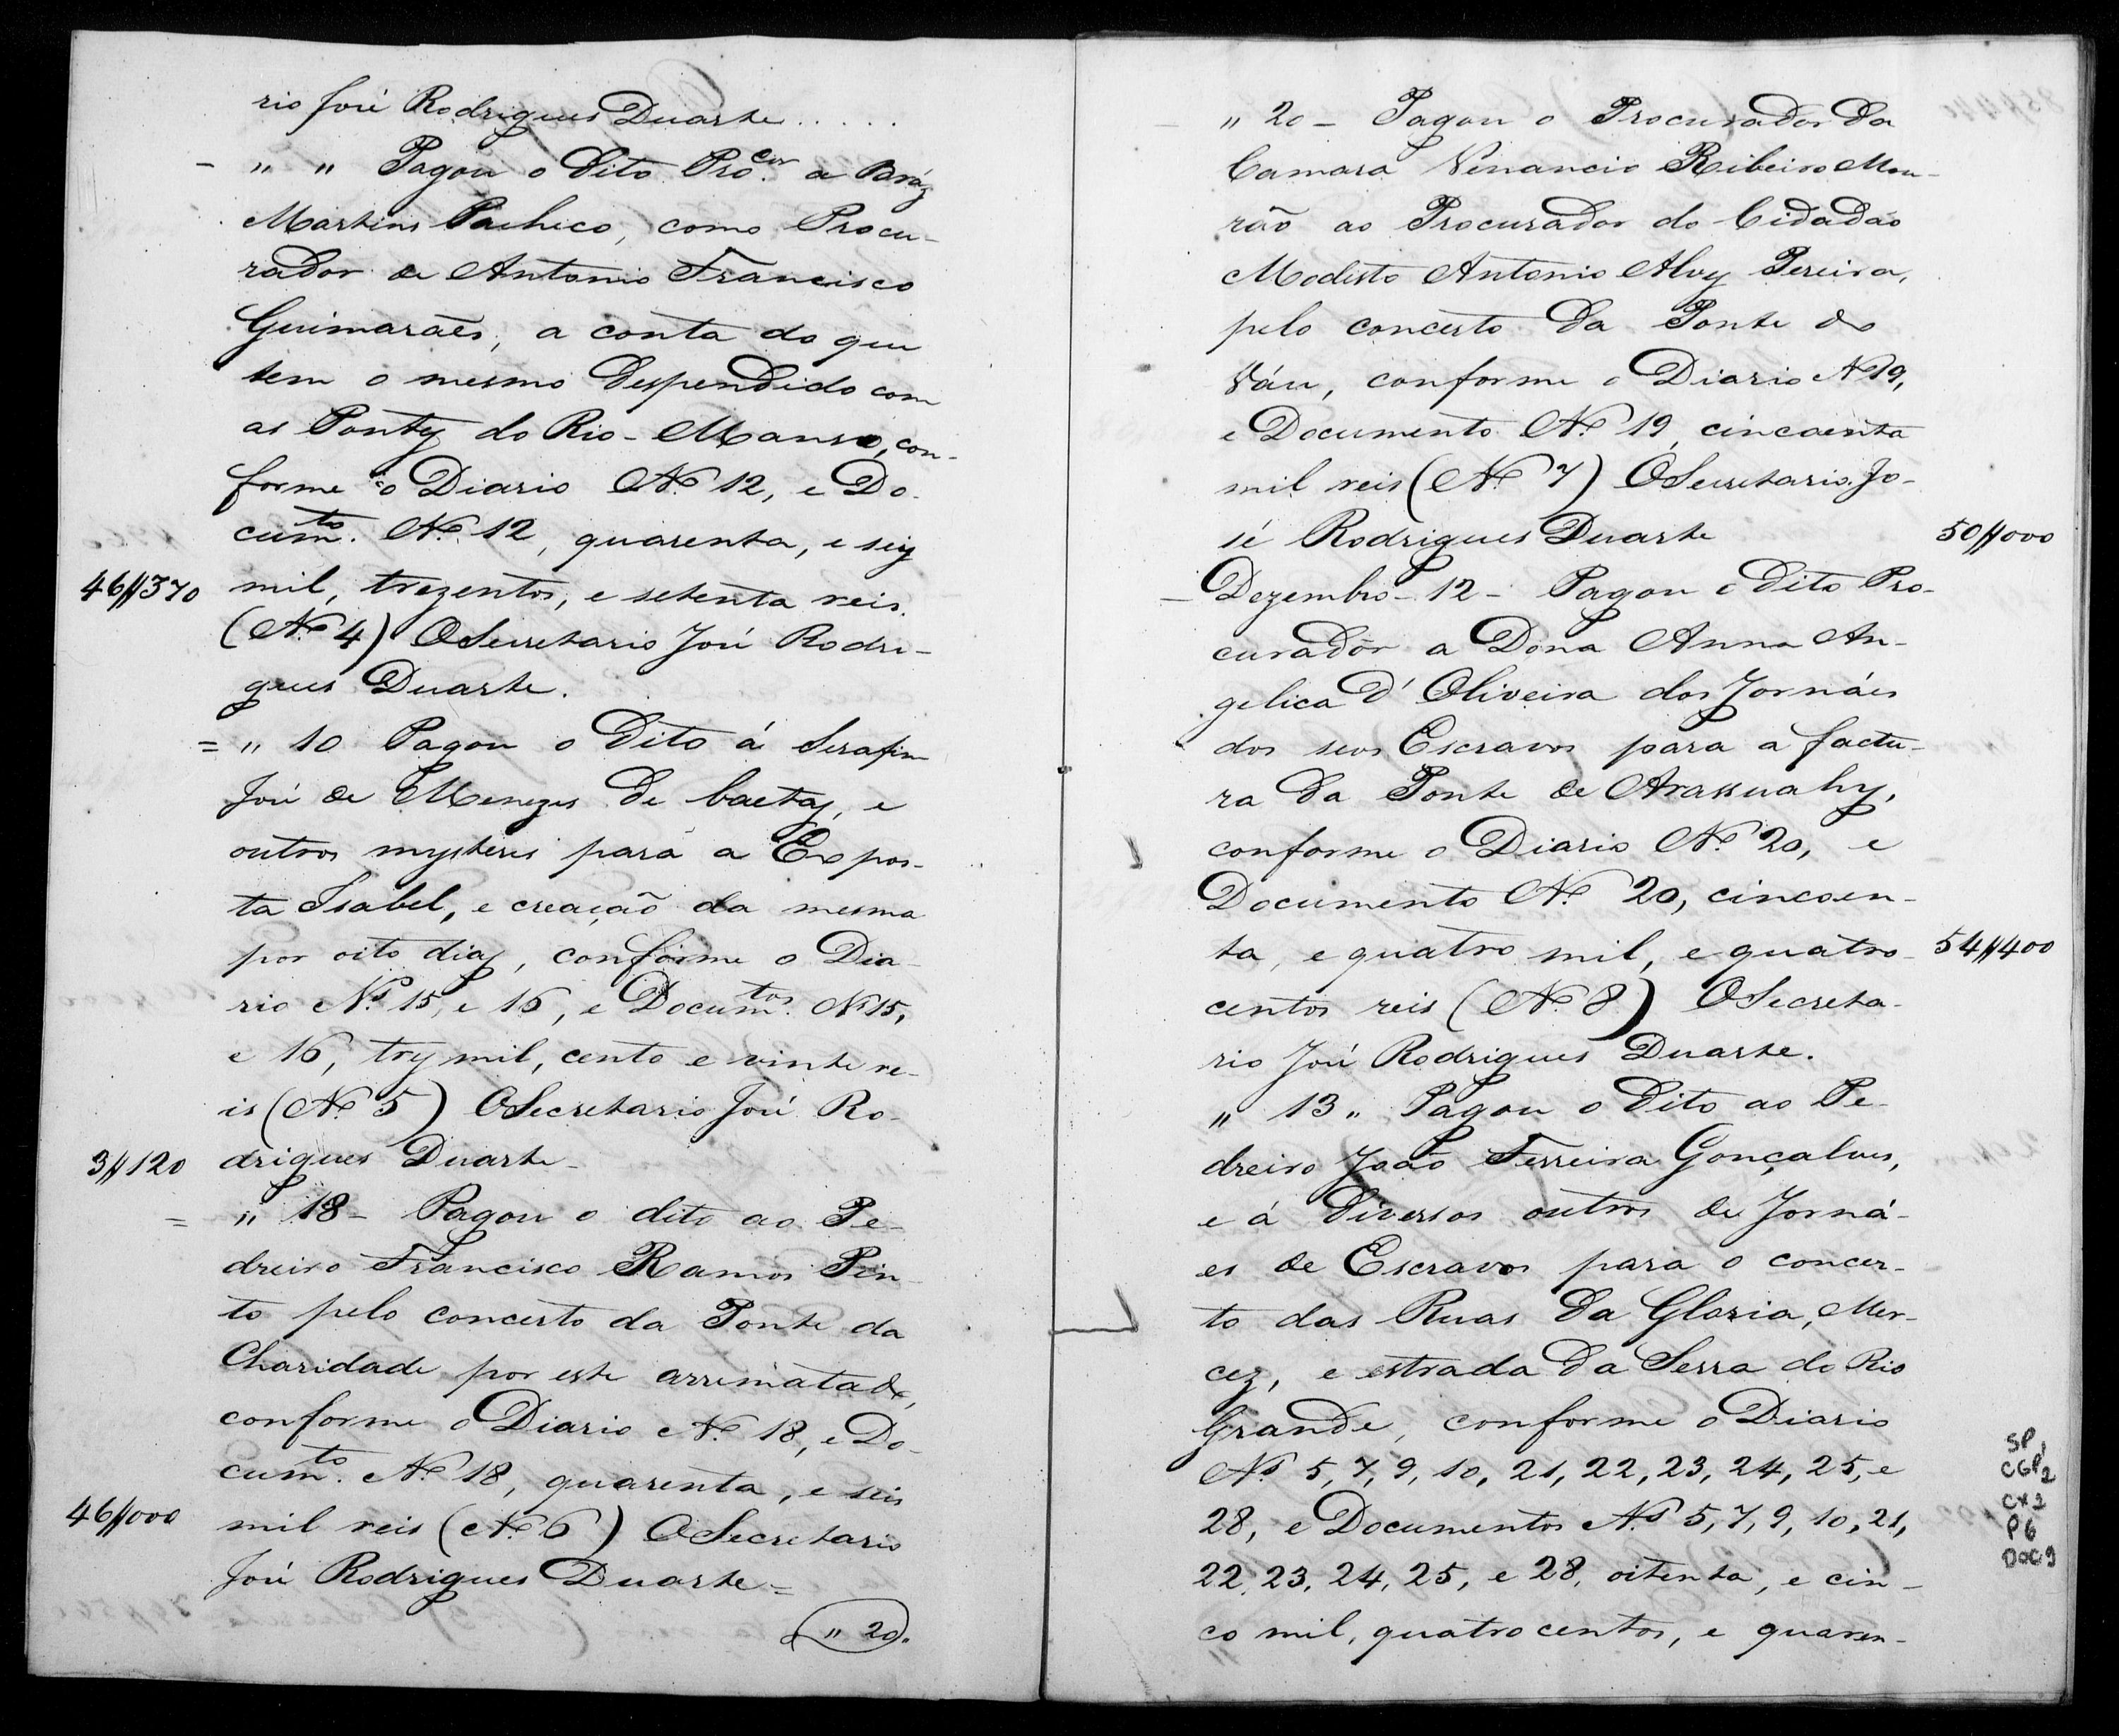 rio José Rodrigues Duarte.....
- " " Pagou o Dito Pro.cor a Bráz
Martins Pacheco, como Procu-
rador de Antonio Francisco
Guimarães, a conta do que
tem o mesmo despendido com
as Pontes do Rio-Manso, con-
forme o Diario N.º 12, e Do-
cum.to N.º 12, quarenta, e seis
46//370 mil, trezentos, e setenta reis.
(N.º 4) O Secretario José Rodri-
gues Duarte.
= " 10 Pagou o Dito á Serafim
José de Menezes de baetas, e
outros mysteres para a Expos-
ta Isabel, e creação da mesma
por oito dias, conforme o Dia-
rio N.os 15, e 16, e Docum.tos N.os 15,
e 16, tres mil, cento e vinte re-
is (N.º 5) O Secretario José Ro-
3//120 drigues Duarte-
= " 18- Pagou o dito ao Pe-
dreiro Francisco Ramos Pin-
to pelo concerto da Ponte da
Charidade por este arrematado,
conforme o Diario N.º 18, e Do-
cum.to N.º 18, quarenta, e seis
46//000 mil reis (N.º 6) O Secretario
José Rodrigues Duarte=
" 20.
" 20- Pagou o Procurador da
Camara Venancio Ribeiro Mou-
rão ao Procurador do Cidadão
Modesto Antonio Alves Pereira,
pelo concerto da Ponte do
Váu, conforme o Diario N.º 19,
e Documento N.º 19, cincoenta
mil reis (N.º 7) O Secretario Jo-
sé Rodrigues Duarte 50//000
- Dezembro- 12- Pagou o Dito Pro-
curador a Dona Anna An-
gelica d'Oliveira dos Jornáes
dos seos Escravos para a factu-
ra da Ponte de Arassuahy,
conforme o Diario N.º 20, e
Documento N.º 20, cincoen-
ta, e quatro mil, e quatro- 54//400
centos reis (N.º 8) O Secreta-
rio José Rodrigues Duarte.
" 13 " Pagou o Dito ao Pe-
dreiro João Ferreira Gonçalves,
e á diversos outros de Jorná-
es de Escravos para o concer-
to das Ruas da Gloria, Mer-
cez, e estrada da Serra do Rio
Grande, conforme o Diario
N.os 5, 7, 9, 10, 21, 22, 23, 24, 25, e
28, e Documentos N.os 5, 7, 9, 10, 21,
22, 23, 24, 25, e 28, oitenta, e cin-
co mil, quatro centos, e quaren-
SP,
CGP2
CX2
P6
DOC9